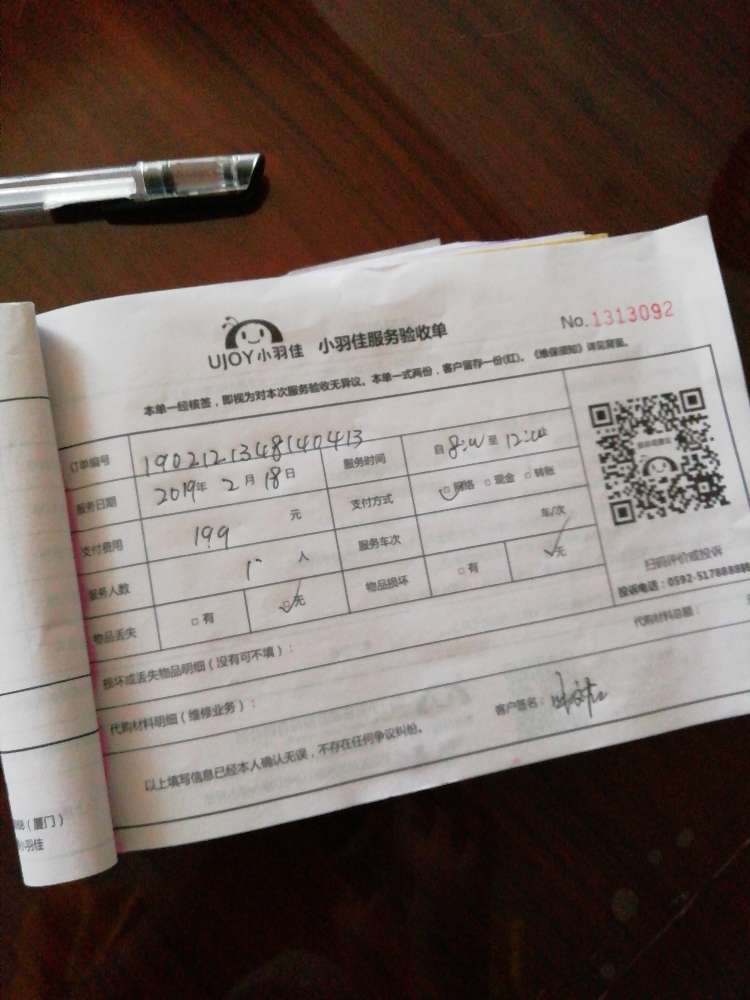 UJOY小羽佳 小羽佳服务验收单 No.1313092
本单一经核签，即视为对本次服务验收无异议。本单一式两份，客户留存一份(红)。《维保须知》详见背面。
订单编号 190212134814 0413 服务时间 自 8:00 至 12:00
服务日期 2019年 2月 18日 支付方式 □网络 □现金 □转账
支付费用 199 元 服务车次 车/次
服务人数 1 人 物品损坏 □有 □无
物品丢失 □有 □无
扫码评价或投诉
投诉电话：0592-5178888转
损坏或丢失物品明细（没有可不填）：
代购材料明细（维修业务）： 代购材料总额：
客户签名：
以上填写信息已经本人确认无误，不存在任何争议纠纷。
（厦门）
小羽佳